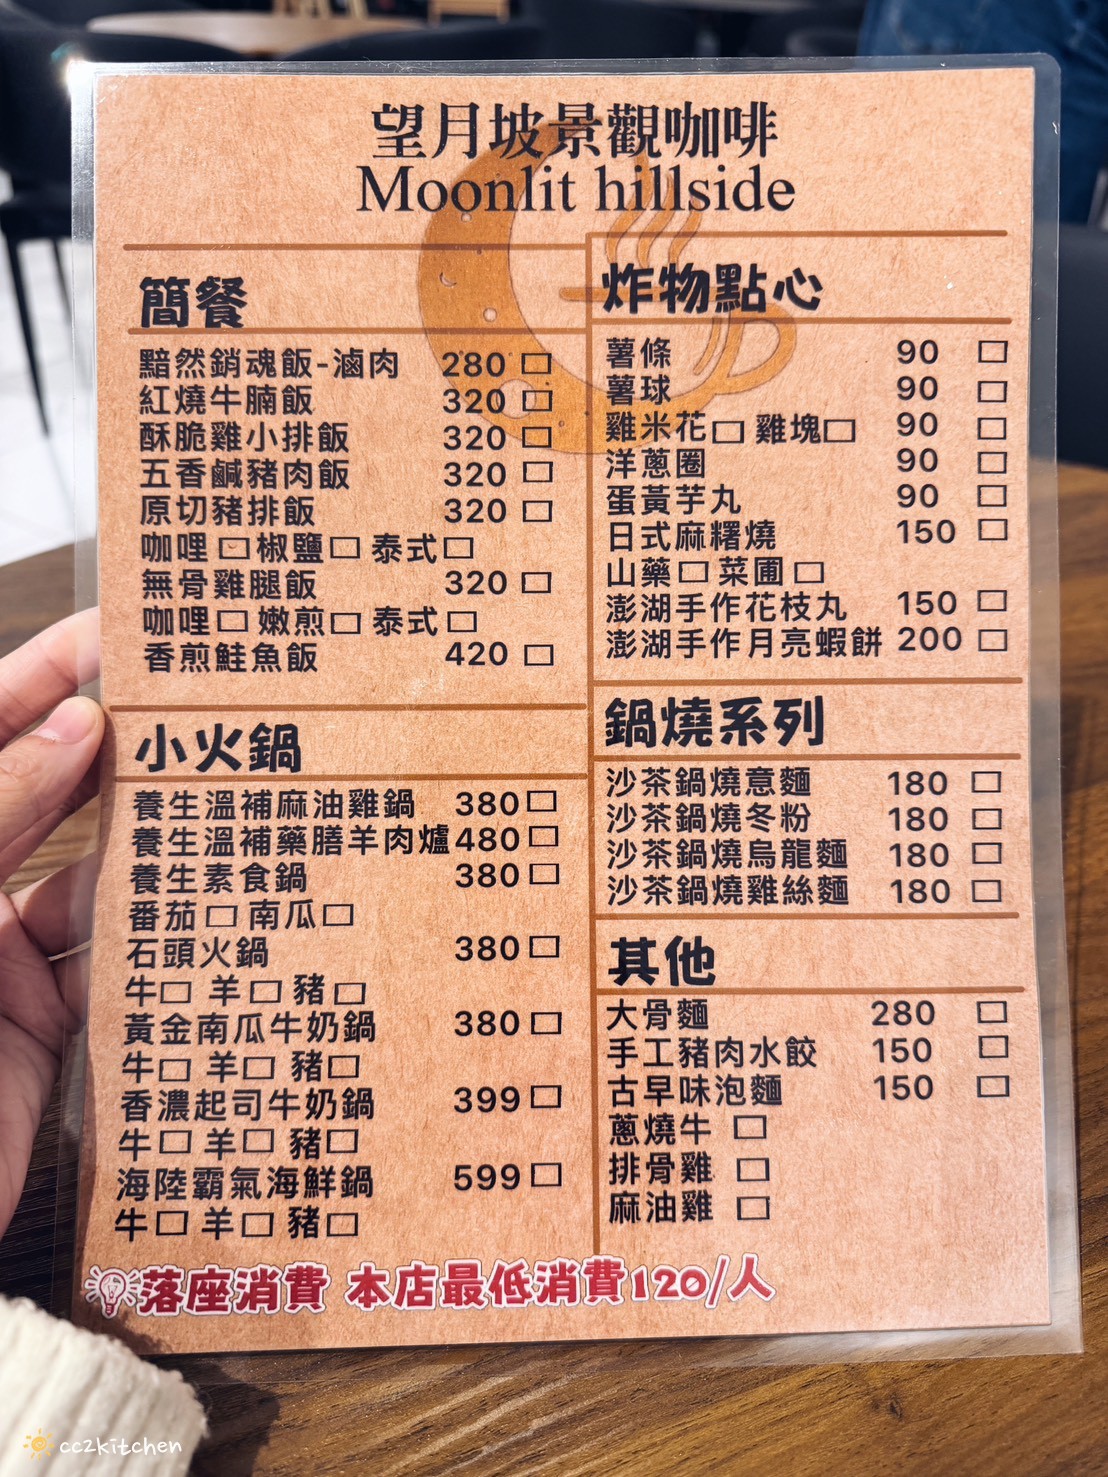 望月坡景觀咖啡
Moonlit hillside
簡餐
黯然銷魂飯-滷肉 280 □
紅燒牛腩飯 320 □
酥脆雞小排飯 320 □
五香鹹豬肉飯 320 □
原切豬排飯 320 □
咖哩□椒鹽□ 泰式□
無骨雞腿飯 320 □
咖哩□ 嫩煎□ 泰式□
香煎鮭魚飯 420 □
小火鍋
養生溫補麻油雞鍋 380 □
養生溫補藥膳羊肉爐 480 □
養生素食鍋 380 □
番茄□ 南瓜□
石頭火鍋 380 □
牛□ 羊□ 豬□
黃金南瓜牛奶鍋 380 □
牛□ 羊□ 豬□
香濃起司牛奶鍋 399 □
牛□ 羊□ 豬□
海陸霸氣海鮮鍋 599 □
牛□ 羊□ 豬□
炸物點心
薯條 90 □
薯球 90 □
雞米花□ 雞塊□ 90 □
洋蔥圈 90 □
蛋黃芋丸 90 □
日式麻糬燒 150 □
山藥□菜圃□
澎湖手作花枝丸 150 □
澎湖手作月亮蝦餅 200 □
鍋燒系列
沙茶鍋燒意麵 180 □
沙茶鍋燒冬粉 180 □
沙茶鍋燒烏龍麵 180 □
沙茶鍋燒雞絲麵 180 □
其他
大骨麵 280 □
手工豬肉水餃 150 □
古早味泡麵 150 □
蔥燒牛 □
排骨雞 □
麻油雞 □
落座消費 本店最低消費120/人
cc2kitchen